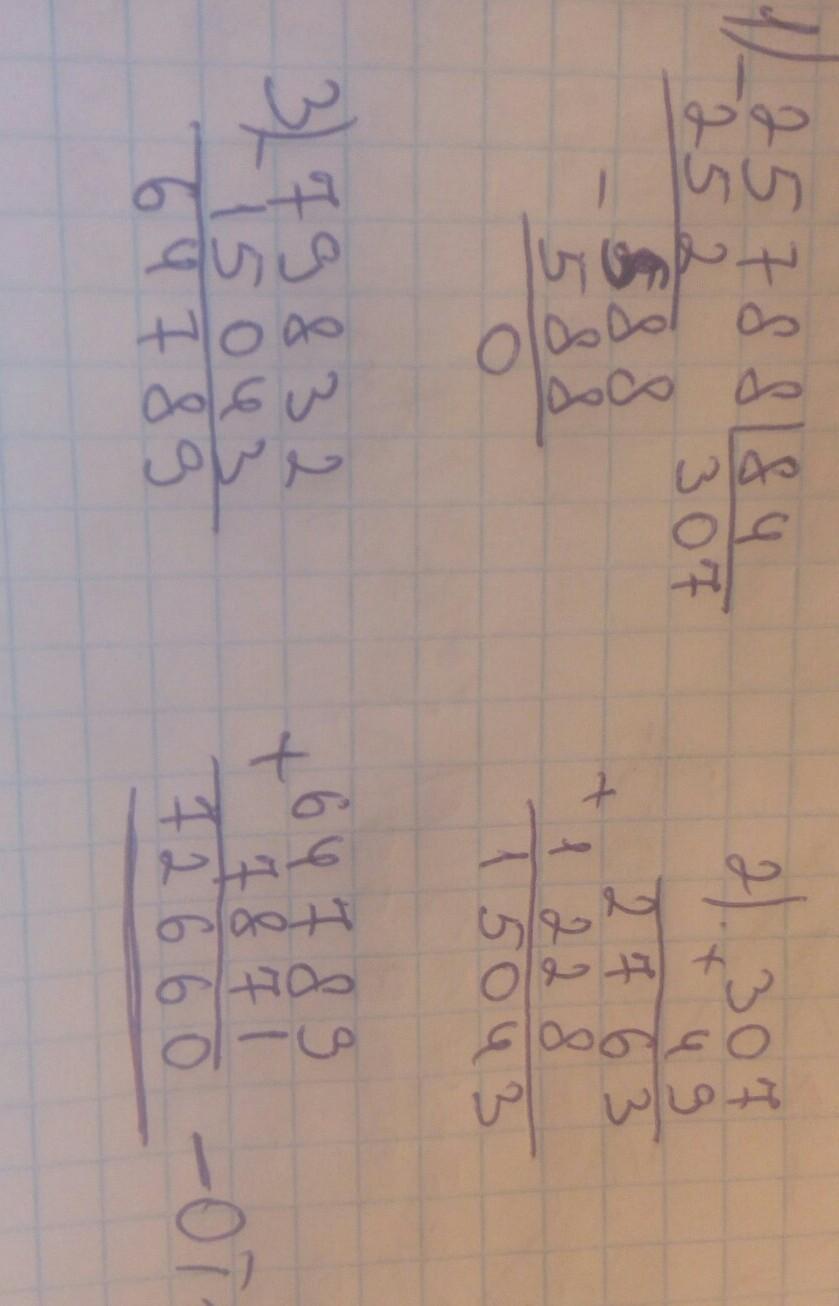 1) - 25788 | 84
252
307
- 588
588
0
2) × 307
49
2763
+ 1228
15043
3) - 79832
15043
64789
+ 64789
7871
72660 –